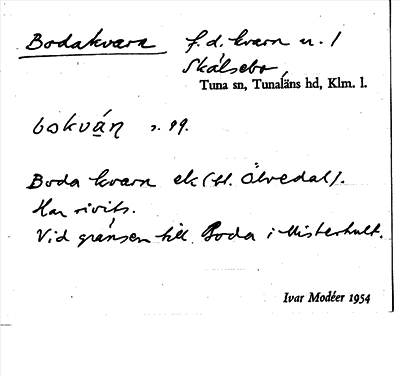 Bodakvarn f.d. kvarn u. /
Skälsebo,
Tuna sn, Tunaläns hd, Klm. l.
s. 89.
Boda kvarn ek (bl. Ölvedal).
Har rivits.
Vid gränsen till Boda i Misterhult.
Ivar Modéer 1954